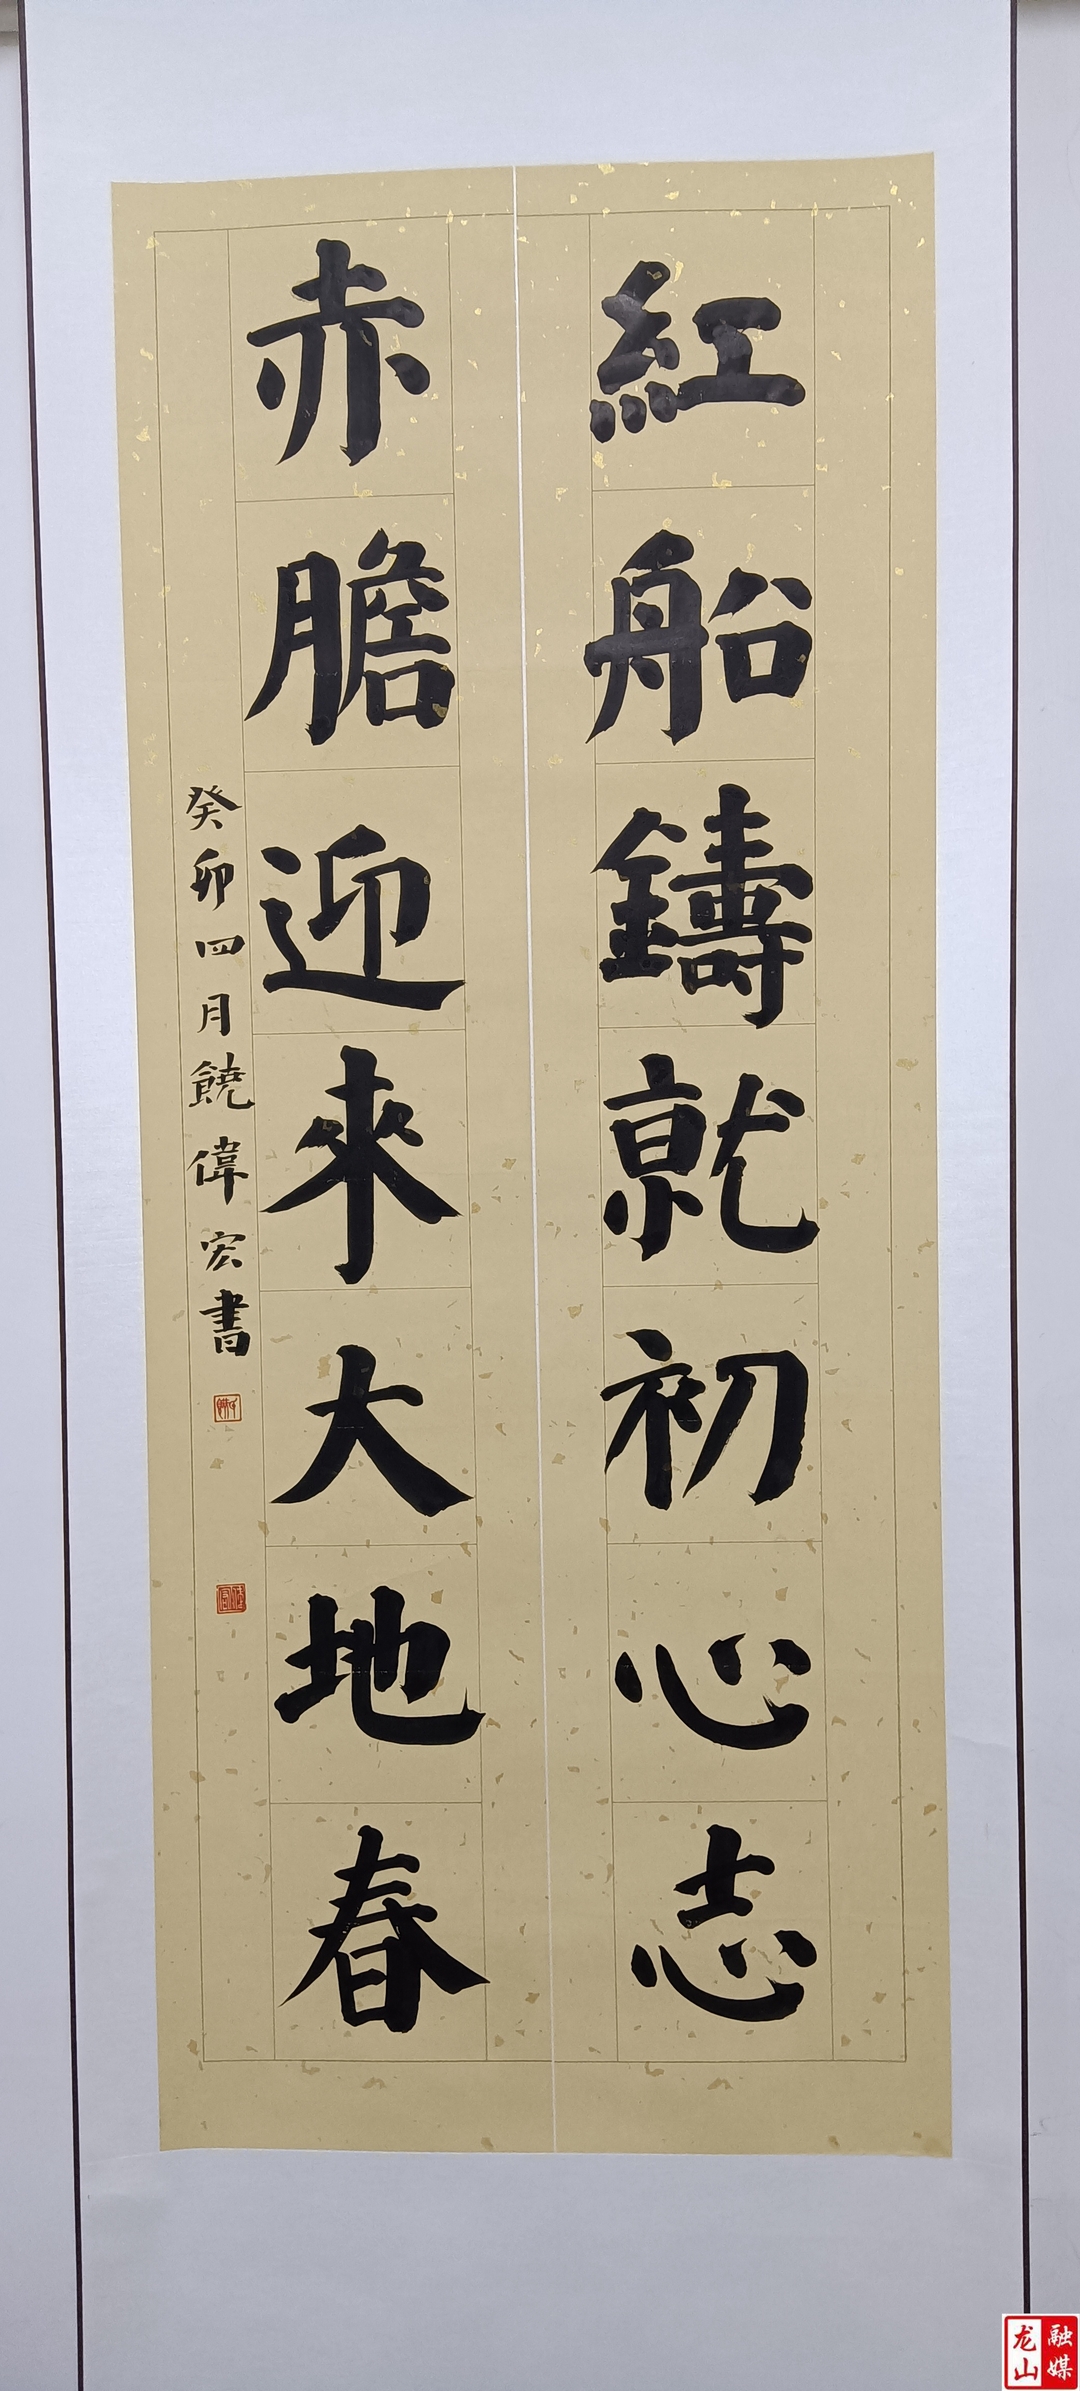 紅船鑄就初心志
赤膽迎來大地春
癸卯四月饒偉宏書
龙山
融媒